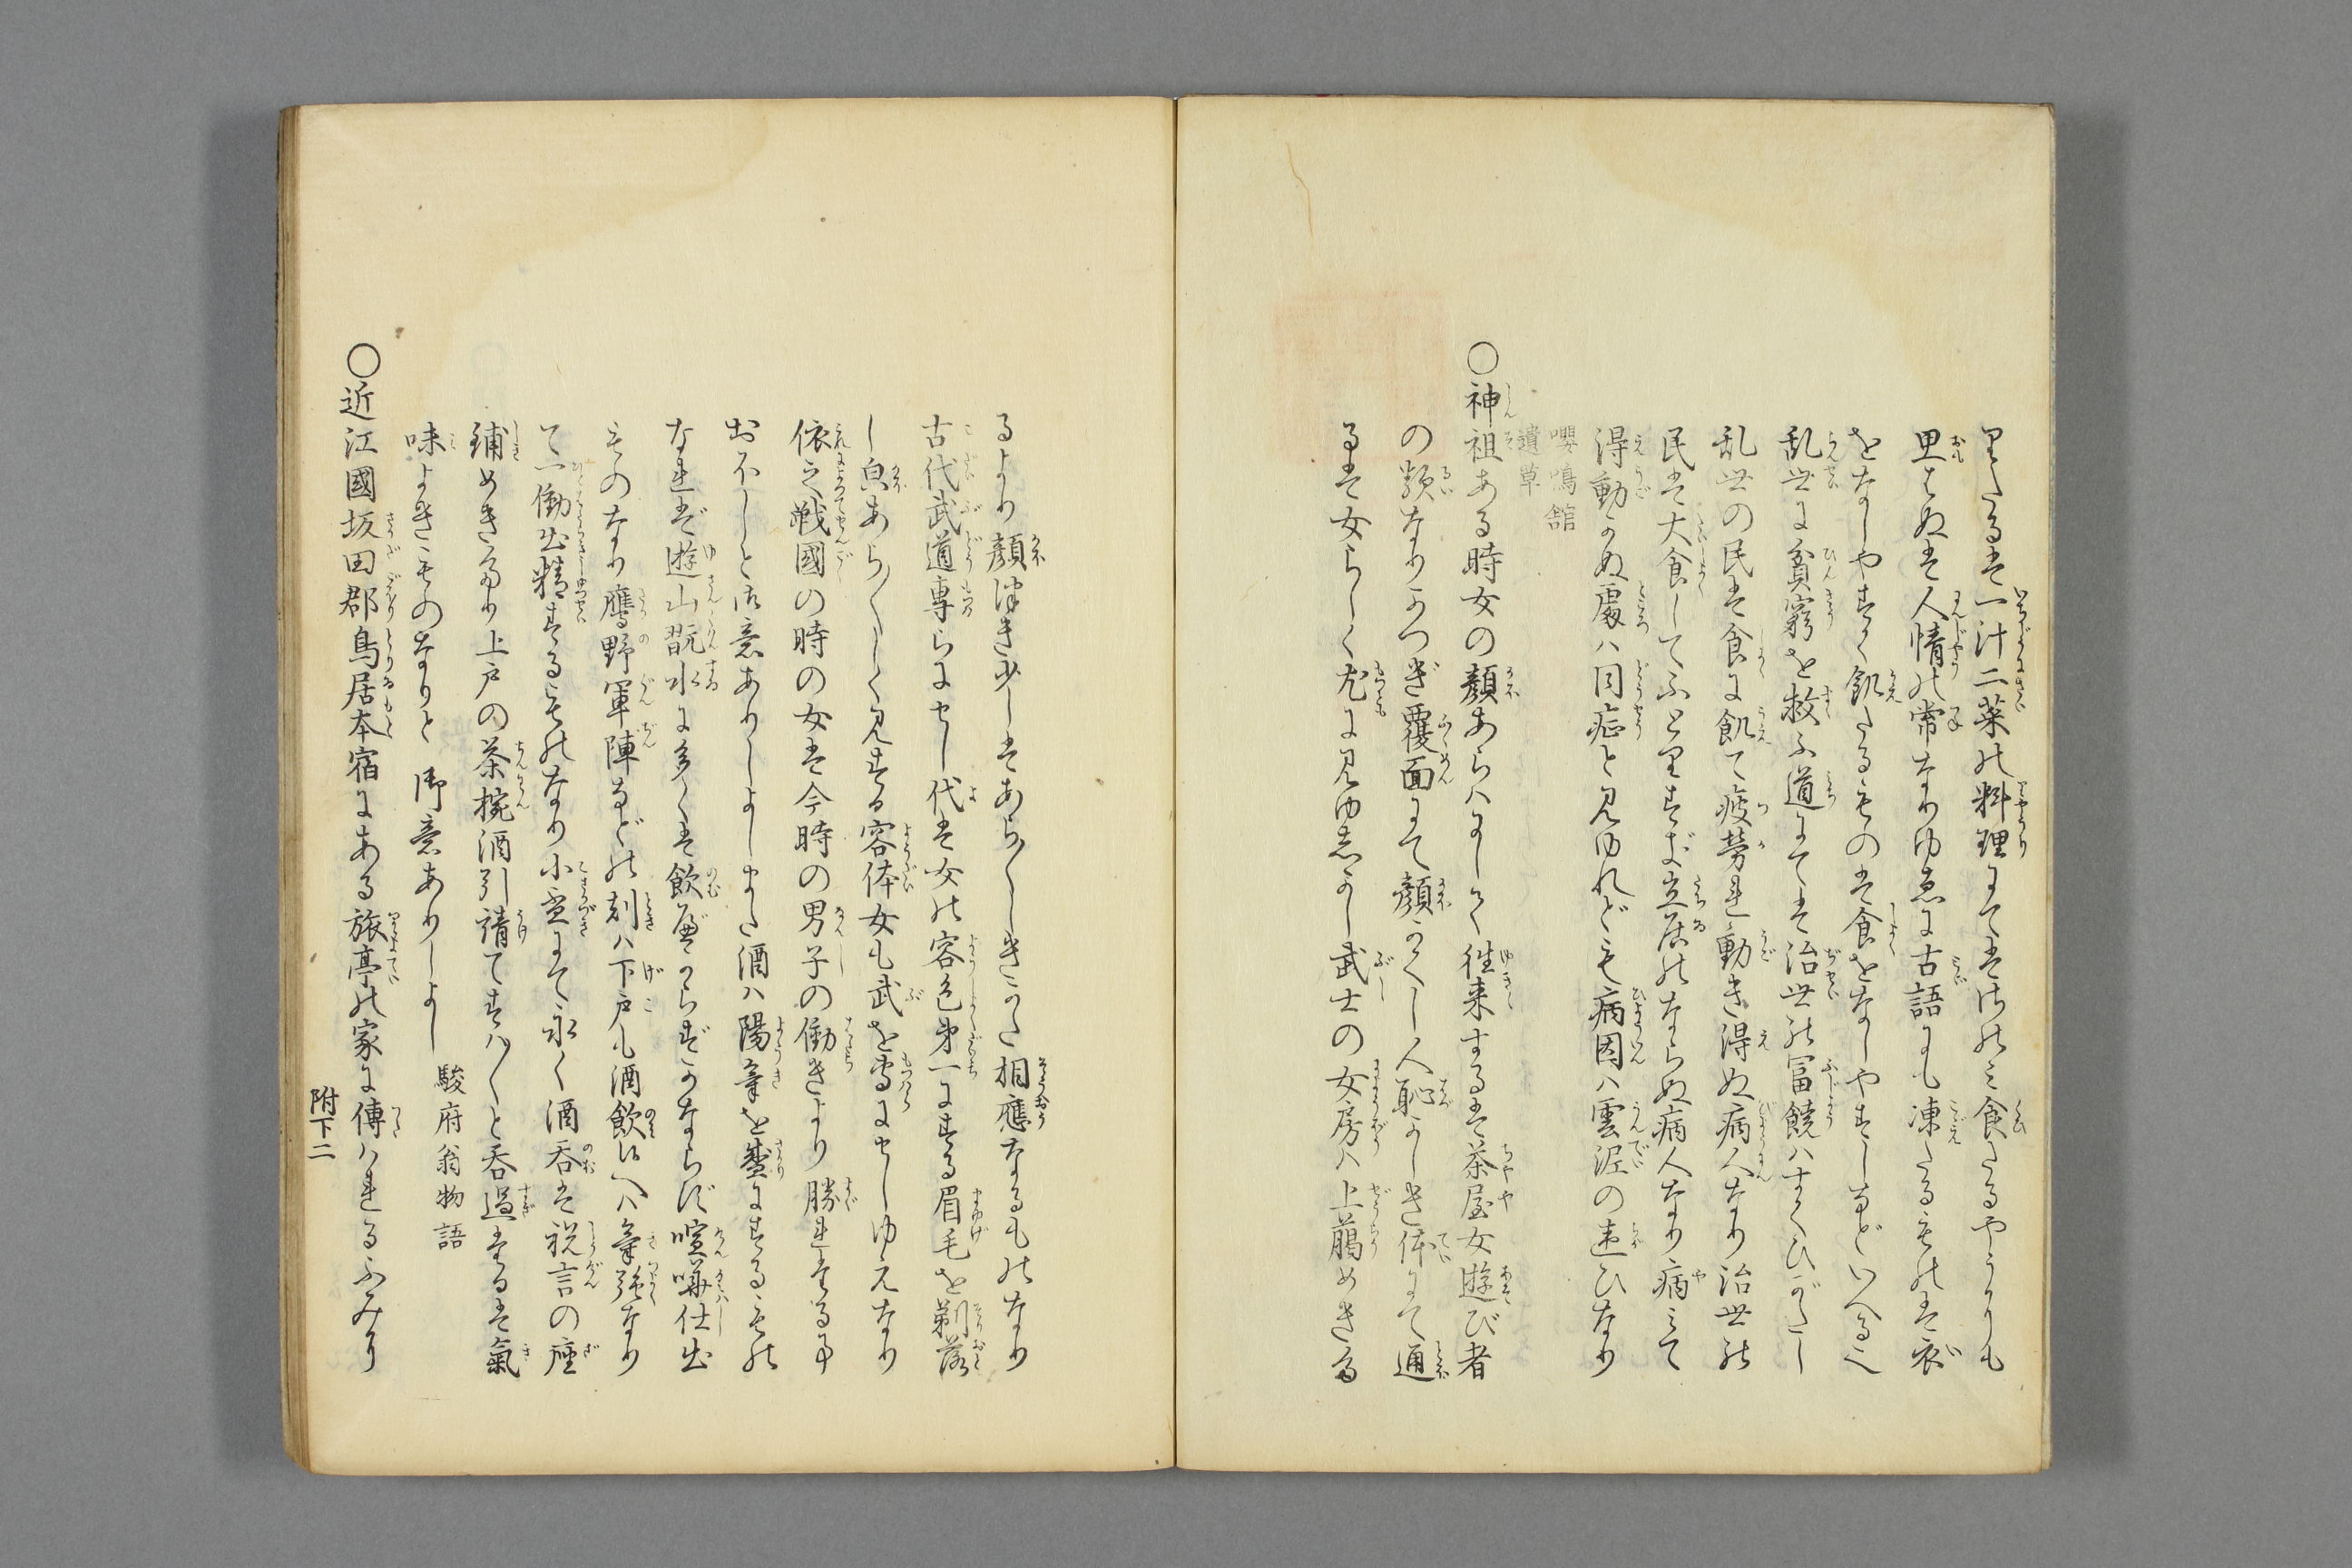 里たるは一汁二菜の料理にては汁のミ食たるやうにも
思はぬは人情の常なりゆゑに古語にも凍たるものは衣
をなしやすく飢たるものは食をなしやすしなどいへる也
乱世に貧窮を救ふ道にては治世の冨饒はすくひがたし
乱世の民は食に飢て疲労れ動き得ぬ病人なり治世の
民は大食してふとりすぎ立居のならぬ病人なり病ミて
得動かぬ處ハ同症と見ゆれども病因ハ雲泥の違ひなり
嚶鳴館
遺草
〇神祖ある時女の顔あらハにして往来するは茶屋女遊び者
の類なりかつぎ覆面にて顔かくし人恥かしき体にて通
るは女らしく尤に見ゆ志かし武士の女房ハ上﨟めきた
るより顔つき少しはあら〳〵しきかた相應なるものなり
古代武道専らにせし代は女の容色第一にする眉毛を剃落
し皃あら〳〵しく見する容体女も武を専にせしゆえなり
依之戦國の時の女は今時の男子の働きより勝れたる事
おほしと御意ありしよしまた酒ハ陽氣を盛にするもの
なれど遊山翫水に多くは飲べからずかならず喧嘩仕出
ものなり鷹野軍陣などの刻ハ下戸も酒飲候へハ氣強なり
て一働出精するものなり小盃にて永く酒呑は祝言の座
鋪めきたり上戸の茶椀酒引請てすハ〳〵と呑過たるは氣
味よきものなりと 御意ありしよし
駿府翁物語
〇近江國坂田郡鳥居本宿にある旅亭の家に傳ハれるふみり
附下二